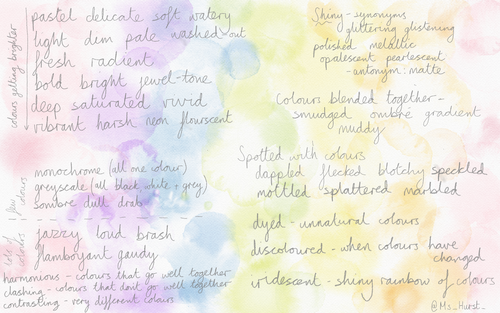 colours getting brighter
pastel delicate soft watery
light dim pale washed out
fresh radient
bold bright jewel-tone
deep saturated vivid
vibrant harsh neon flourscent
few colours
monochrome (all one colour)
greyscale (all black white + grey)
sombre dull drab
colours
jazzy loud brash
flamboyant gaudy
harmonious - colours that go well together
clashing - colours that don't go well together
contrasting - very different colours
Shiny - synonyms
glittering glistening
polished metallic
opalescent pearlescent
- antonym: matte
Colours blended together -
smudged ombre gradient
muddy
Spotted with colours
dappled flecked blotchy speckled
mottled splattered marbled
dyed - unnatural colours
discoloured - when colours have
changed
iridescent - shiny rainbow of colours
@Ms_Hurst_